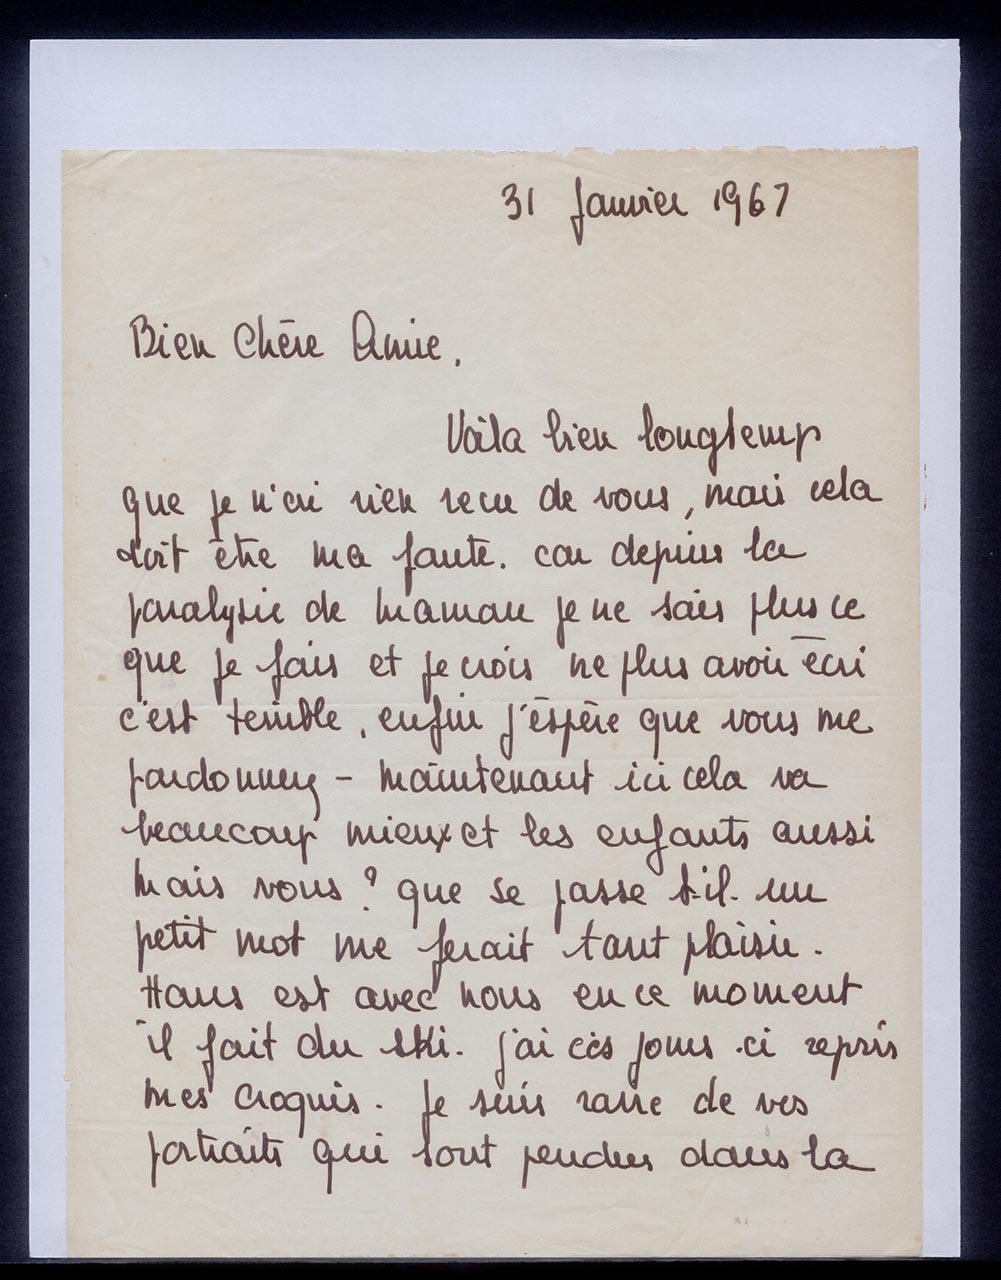 31 Janvier 1967
Bien Chère Amie.
Voila bien longtemp
que je n'ai rien recu de vous, mais cela
doit être ma faute. car depuis la
paralysie de maman je ne sais plus ce
que je fais et je crois ne plus avoir écri
c'est terrible, enfin j'éspère que vous me
pardonnez – maintenant ici cela va
beaucoup mieux et les enfants aussi
Mais vous ? que se passe t-il. un
petit mot me ferait tant plaisir.
Hans est avec nous en ce moment
il fait du ski. j'ai cès jours-ci repris
mes croquis. Je suis ravie de vos
portraits qui sont pendus dans la